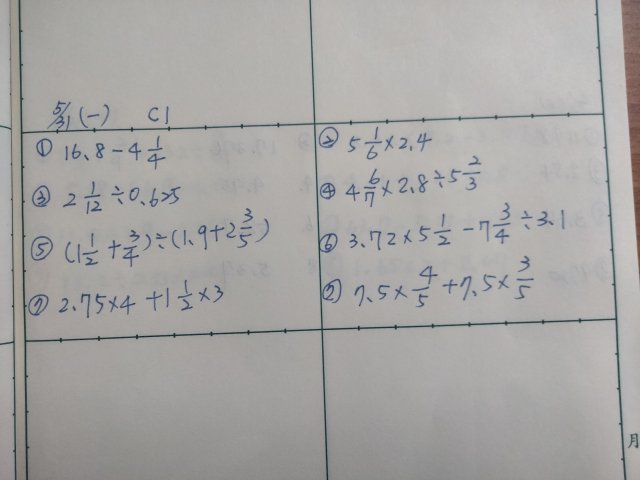 5/31 (一) C1
① 16.8 - 4 1/4
② 5 1/6 × 2.4
③ 2 1/12 ÷ 0.625
④ 4 6/7 × 2.8 ÷ 5 2/3
⑤ (1 1/2 + 3/4) ÷ (1.9 + 2 3/5)
⑥ 3.72 × 5 1/2 - 7 3/4 ÷ 3.1
⑦ 2.75 × 4 + 1 1/2 × 3
② 7.5 × 4/5 + 7.5 × 3/5
月